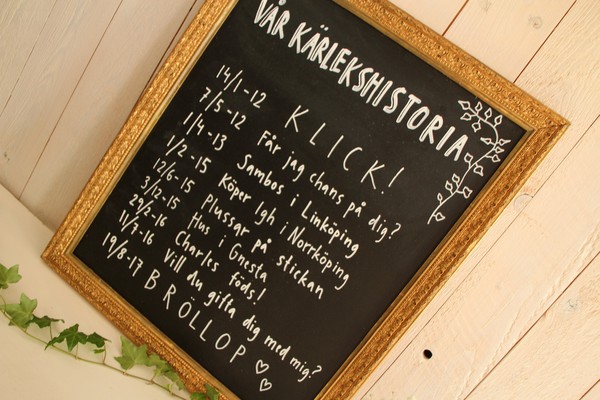 VÅR KÄRLEKSHISTORIA
14/1-12 KLICK!
7/5-12 Får jag chans på dig?
1/4-13 Sambos i Linköping
1/2-15 Köper lgh i Norrköping
12/6-15 Plussar på stickan
3/12-15 Hus i Gnesta
29/2-16 Charles föds!
11/7-16 Vill du gifta dig med mig?
19/8-17 BRÖLLOP ♡♡